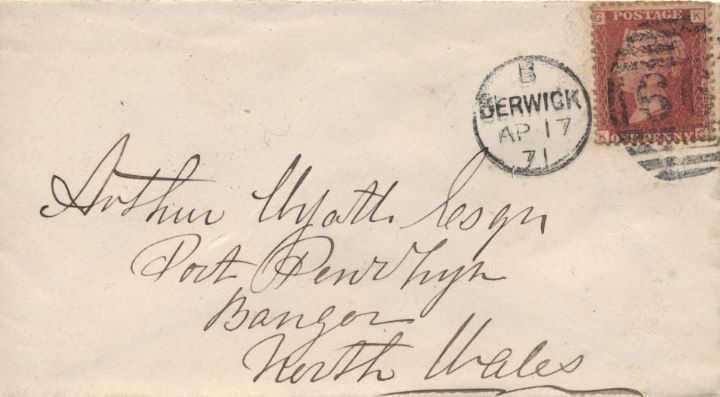 G POSTAGE K
B
BERWICK
AP 17
71
K ONE PENNY G
Arthur Wyatt Esqr
Port Penrhyn
Bangor
North Wales